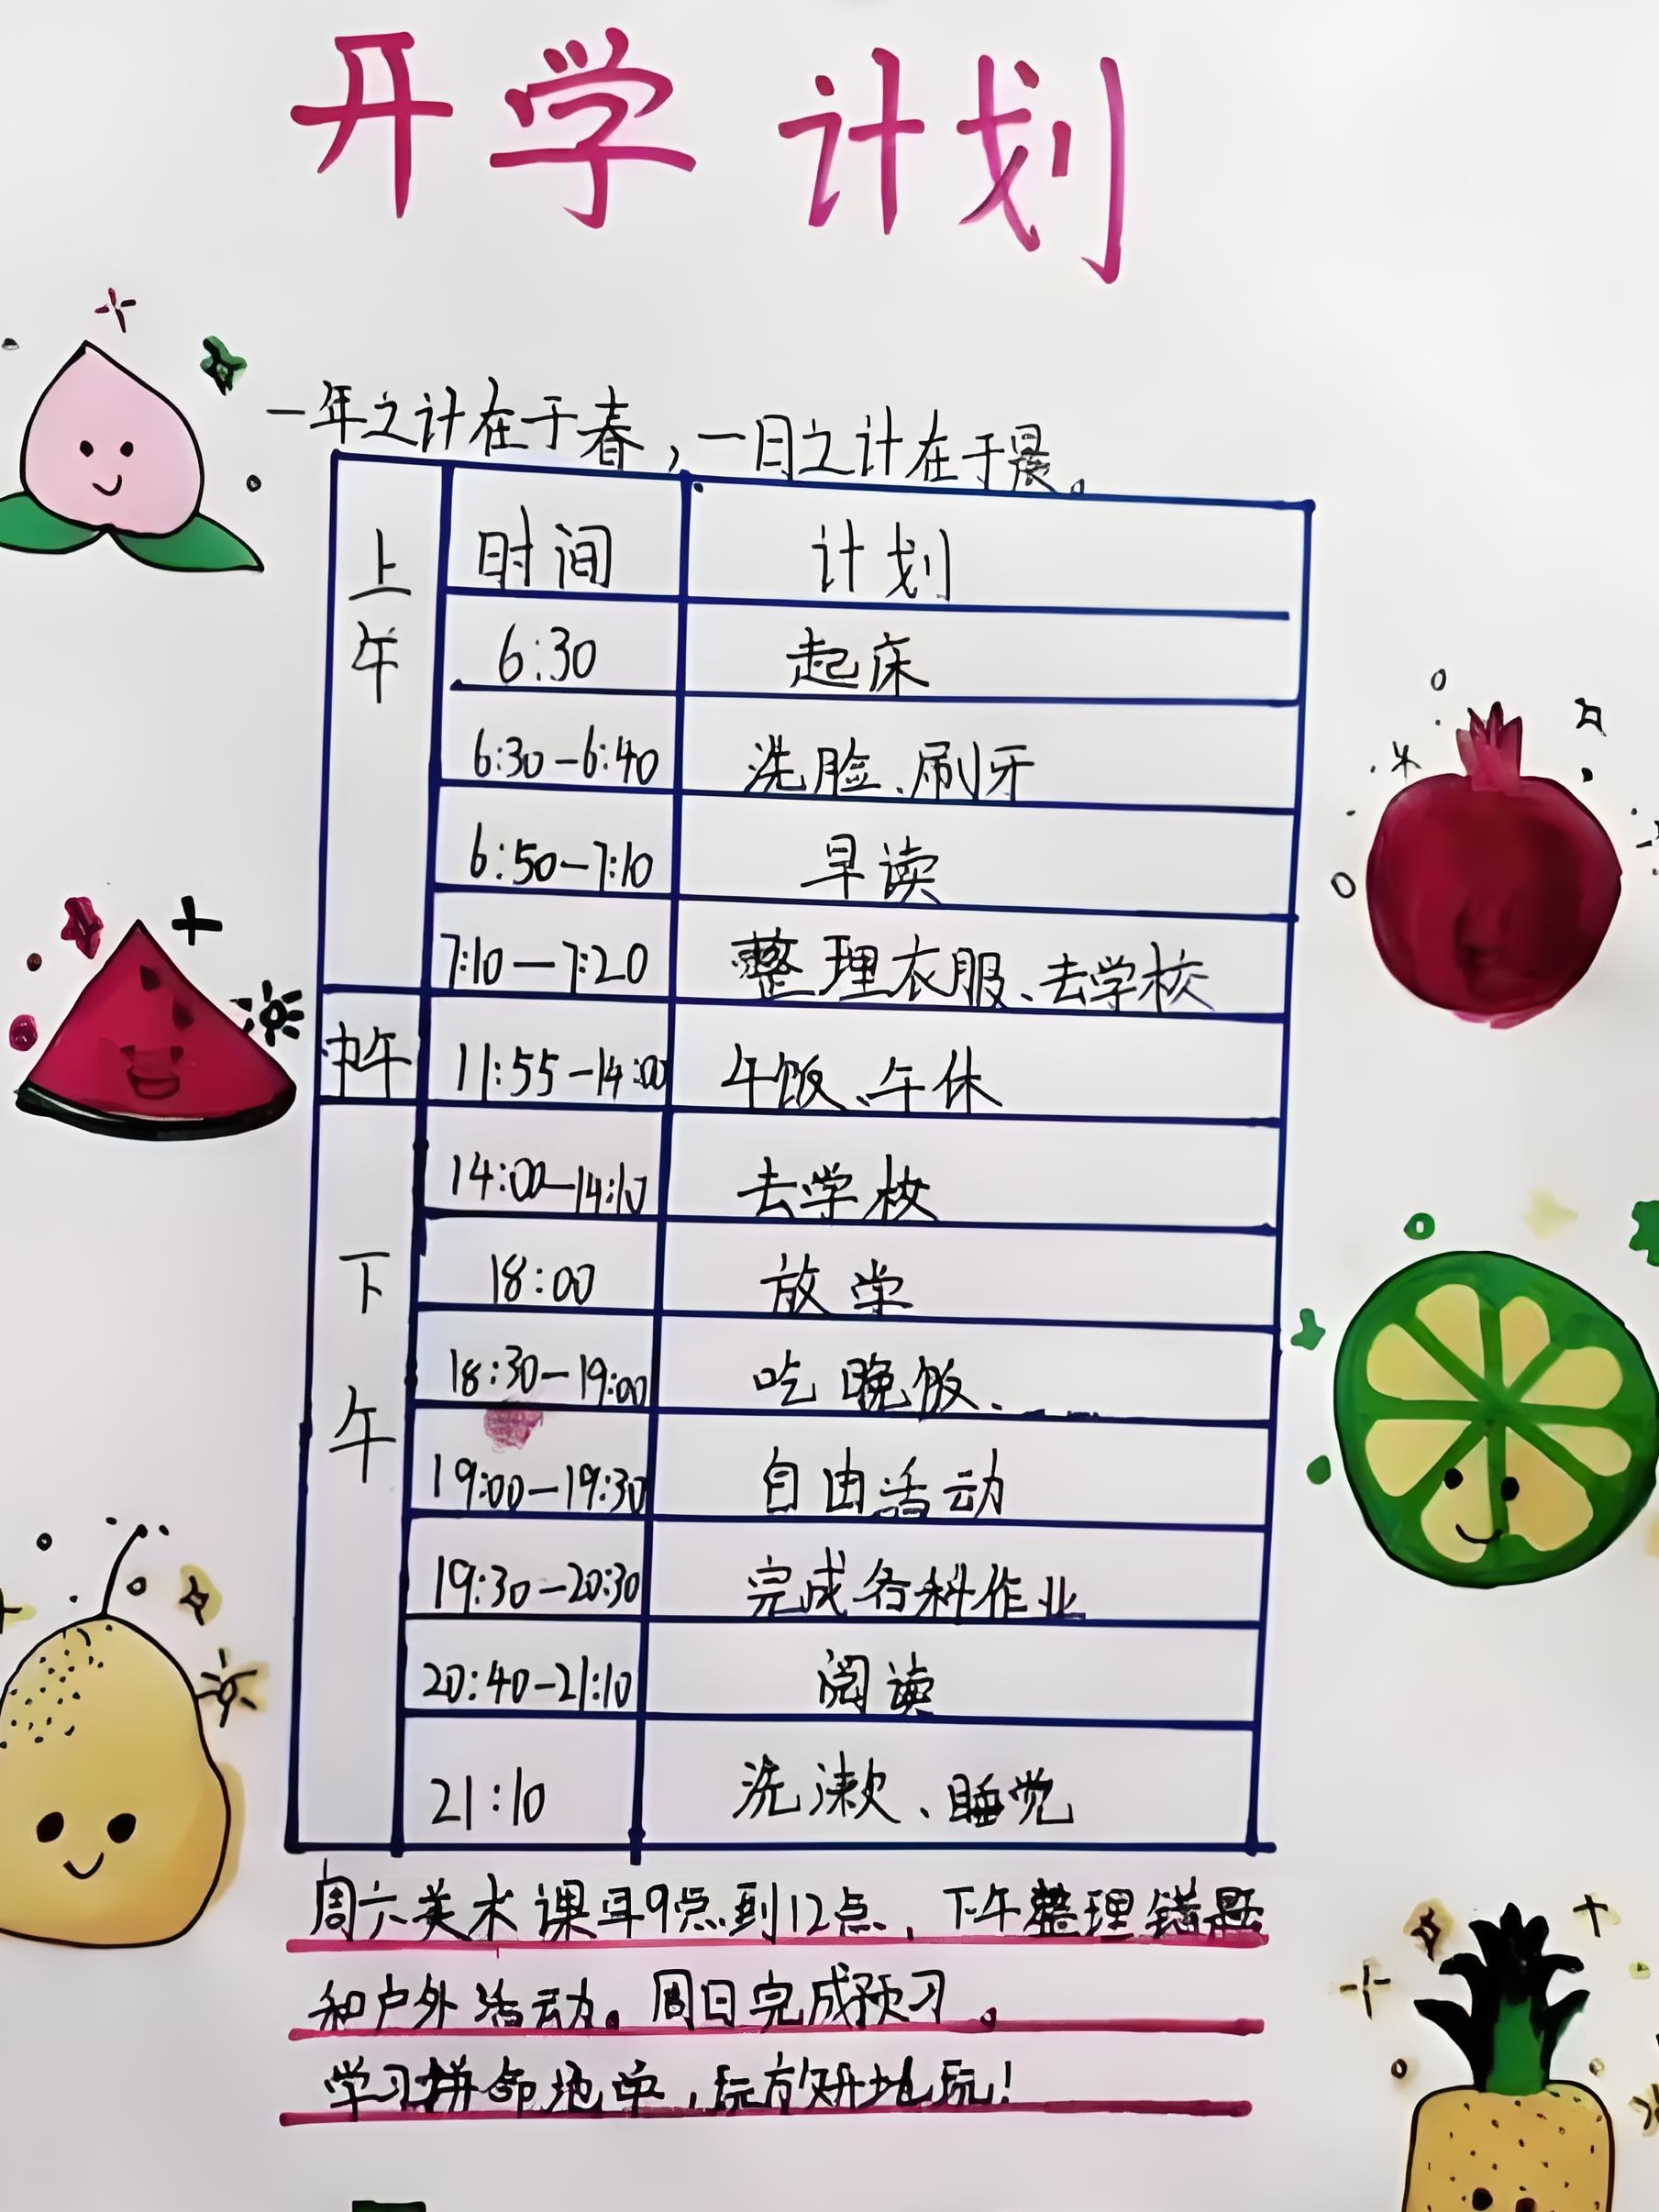 开学 计划
一年之计在于春,一日之计在于晨。
上午 时间 计划
6:30 起床
6:30-6:40 洗脸、刷牙
6:50-7:10 早读
7:10-7:20 整理衣服、去学校
中午 11:55-14:00 午饭、午休
下午 14:00-14:10 去学校
18:00 放学
18:30-19:00 吃晚饭、
19:00-19:30 自由活动
19:30-20:30 完成各科作业
20:40-21:10 阅读
21:10 洗漱、睡觉
周六美术课早9点到12点,下午整理错题
和户外活动。周日完成预习。
学习拼命地学,玩放开地玩!